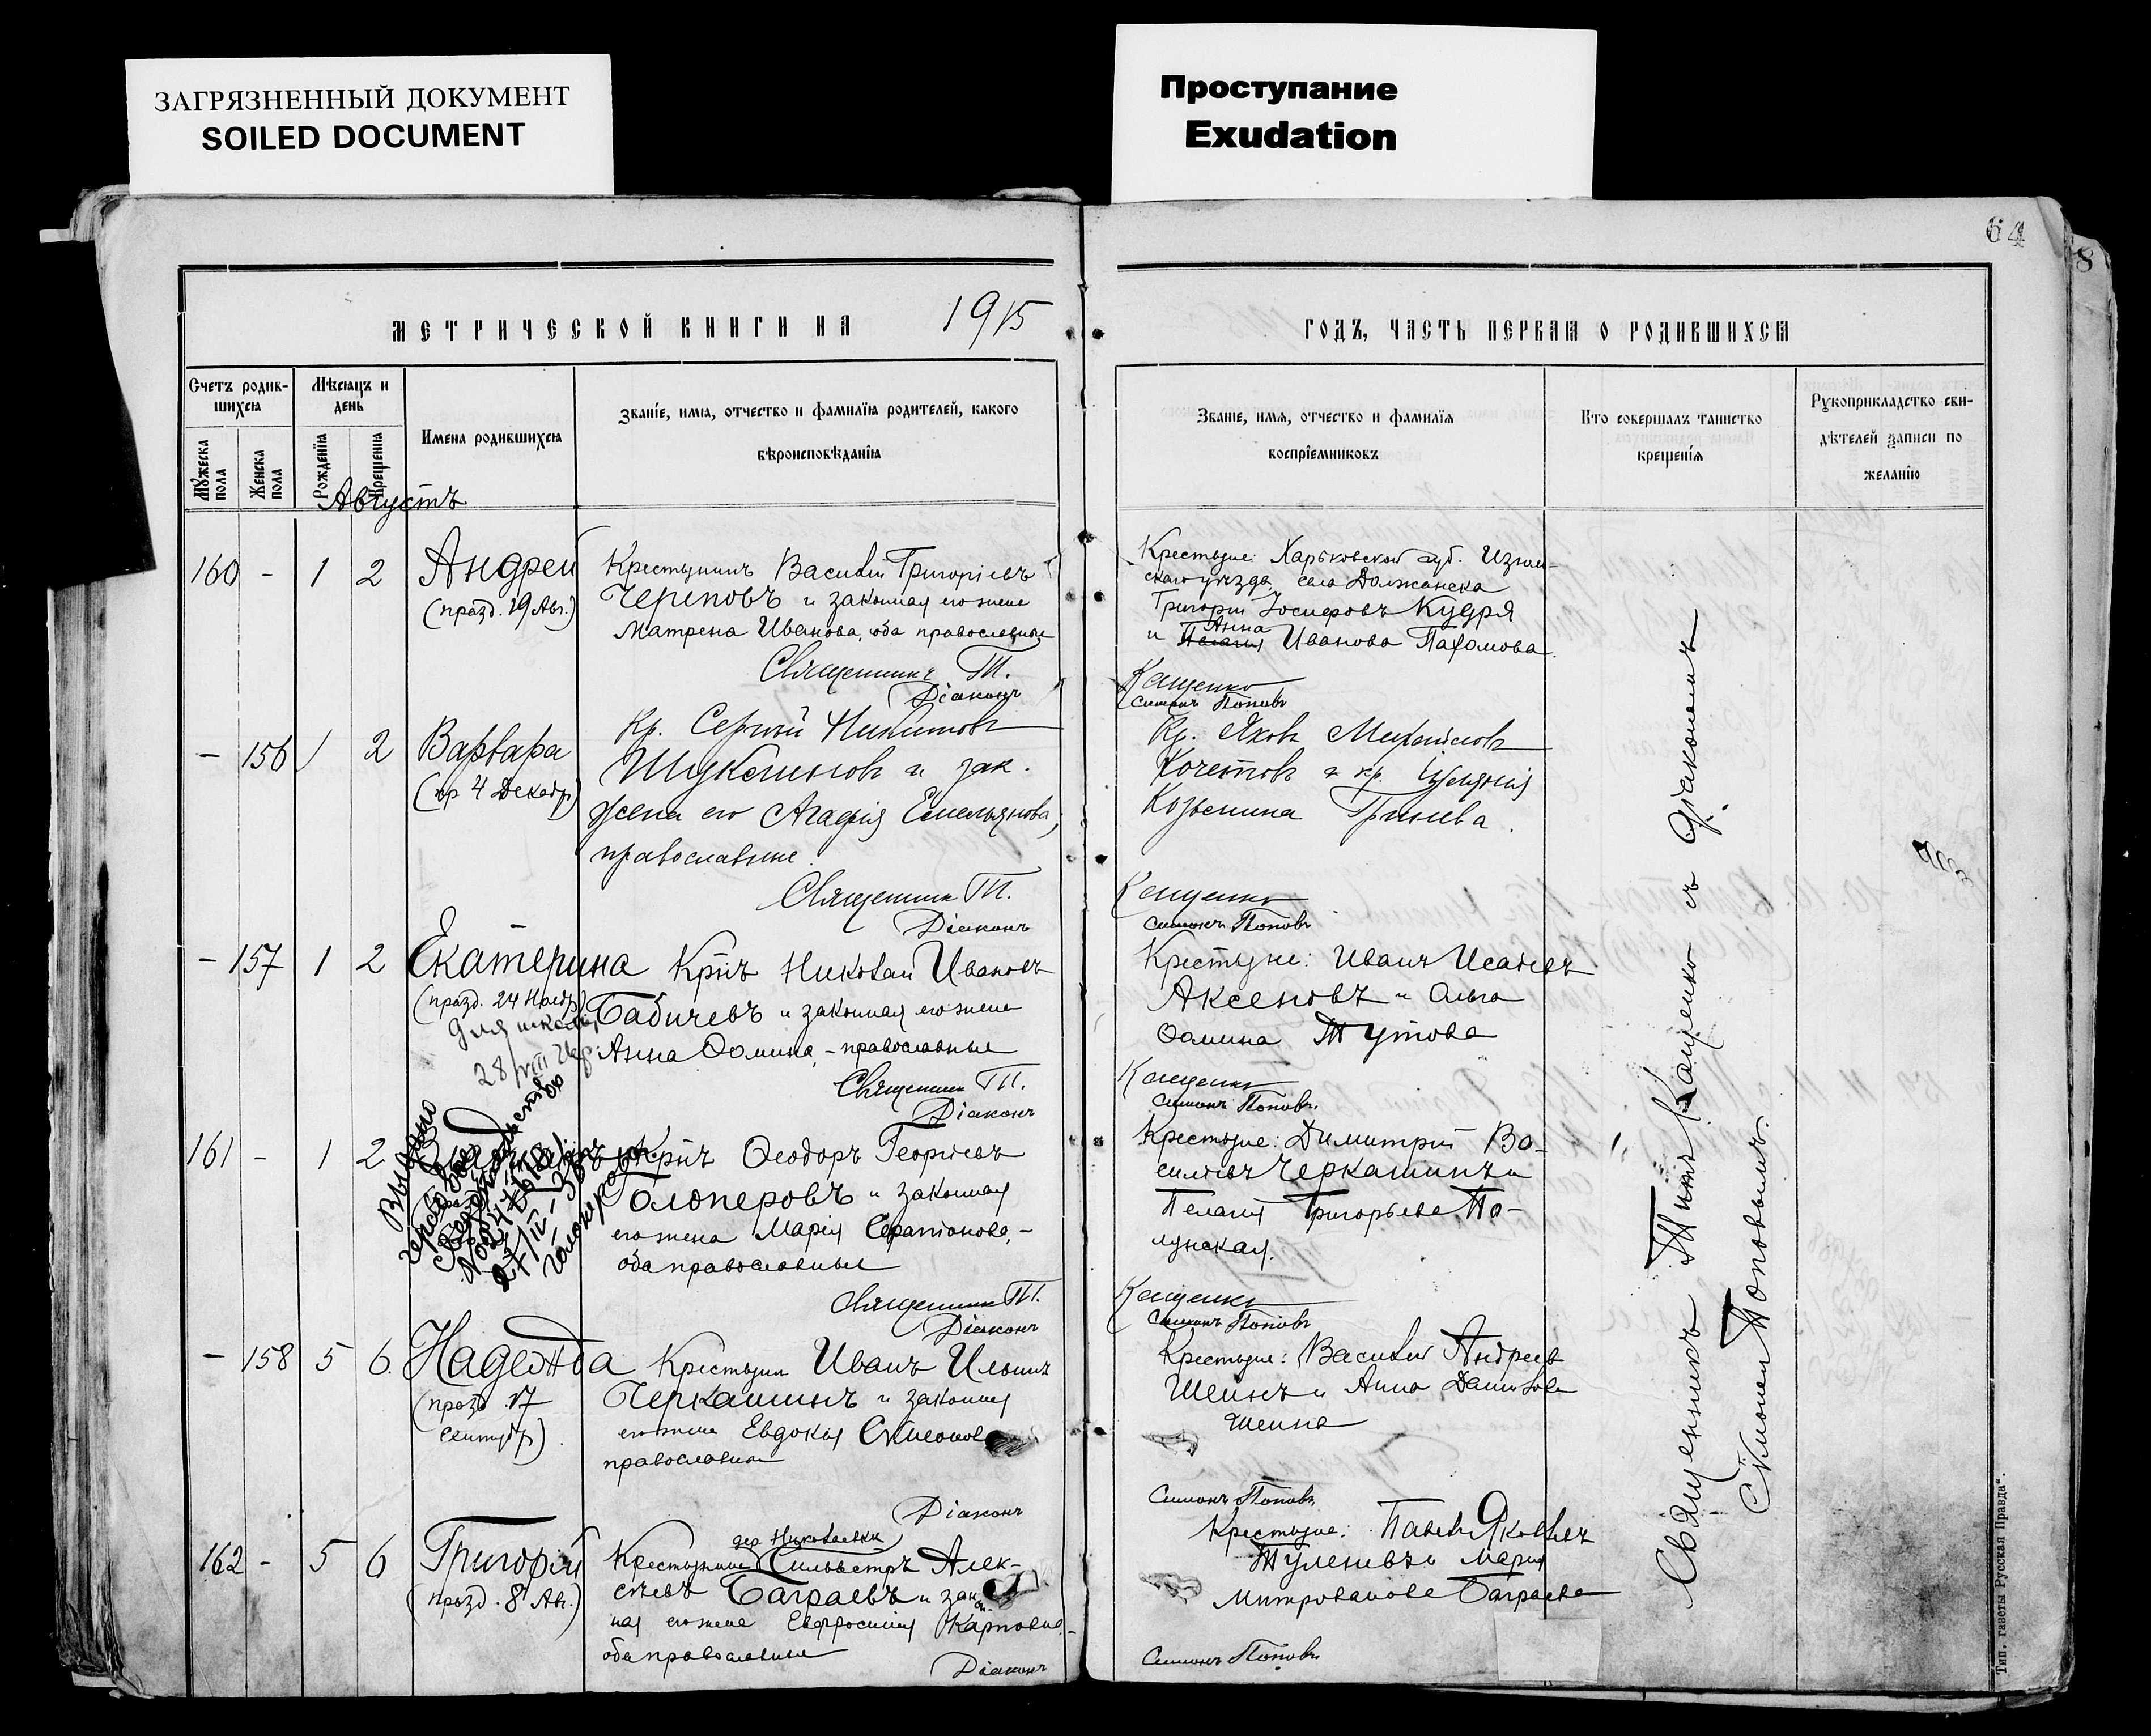 ЗАГРЯЗНЕННЫЙ ДОКУМЕНТ
SOILED DOCUMENT
Проступание
Exudation
64
8
МЕТРИЧЕСКОЙ КНИГИ НА 1915
ГОДЪ, ЧАСТЬ ПЕРВАЯ О РОДИВШИХСЯ
Счетъ родив-
шихся
Мѣсяцъ и
день
Мужеска
пола
Женска
пола
Рожденія
Крещенія
Имена родившихся
Званіе, имя, отчество и фамилія родителей, какого
вѣроисповѣданія
Званіе, имя, отчество и фамилія
воспріемниковъ
Кто совершалъ таинство
крещенія
Рукоприкладство сви-
дѣтелей записи по
желанію
Августъ
160 - 1 2 Андрей
(празд. 19 Авг.)
Крестьянинъ Василій Григоріевъ
Череповъ и законная его жена
Матрена Иванова, оба православные
Священникъ Т.
Діаконъ
Крестьяне: Харьковской губ. Изюм-
скаго уѣзда, села Должанска
Григорій Іосифовъ Кудря
Анна
и Иванова Пахомова
Кащенко
Симонъ Поповъ
- 156 1 2 Варвара
(пр 4 Декабр)
Кр. Сергѣй Никитовъ
и зак.
жена его Агафія Емельянова,
православные.
Священникъ Т.
Діаконъ
Кр. Яковъ Михайловъ
Кочетовъ и кр.
Козьмина Гринева.
Кащенко
Симонъ Поповъ
- 157 1 2 Екатерина
(празд. 24 Ноябр)
для школы
28
Кр-нъ Николай Ивановъ
Бабичевъ и законная его жена
Анна Ѳомина, - православные
Священникъ Т.
Діаконъ
Крестьяне: Иванъ Исаевъ
Аксеновъ и Ольга
Ѳомина Тутова
Кащенко
Симонъ Поповъ.
161 - 1 2
Выдано
Кр-нъ Ѳеодоръ Георгіевъ
Голоперовъ и законная
его жена Марія Серапіонова, -
оба православные
Священникъ Т.
Діаконъ
Крестьяне: Димитрій Ва-
сильевъ Черкашинъ и
Пелагія Григорьева По-
лунская.
Кащенко
Симонъ Поповъ
- 158 5 6. Надежда
(празд. 17
Сентябр)
Крестьян Иванъ Ильинъ
Черкашинъ и законная
его жена Евдокія
православные
Діаконъ
Крестьяне: Василій Андреев
Шеинъ и Анна Данилова
Шеина
Симонъ Поповъ
162 - 5 6 Григорій
(празд. 8 Авг.)
дер Николаевки
Крестьянинъ Сильвестръ Алек-
сѣевъ Баграевъ и закон-
ная его жена Евфросинія Карповна, -
оба православные
Діаконъ
Крестьяне: Павелъ Яковлевъ
Туленевъ и Марія
Митрофанова Баграева
Симонъ Поповъ
Священникъ Титъ Кащенко съ діакономъ
Симономъ Поповымъ.
Тип. газеты „Русская Правда“.